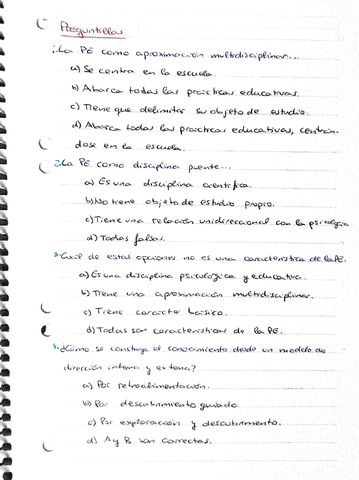 Preguntillas
1. La PE como aproximación multidisciplinar...
a) Se centra en la escuela.
b) Abarca todas las prácticas educativas.
c) Tiene que delimitar su objeto de estudio.
d) Abarca todas las prácticas educativas, centrán-
dose en la escuela.
2. La PE como disciplina puente...
a) Es una disciplina científica.
b) No tiene objeto de estudio propio.
c) Tiene una relación unidireccional con la psicología
d) Todas falsas.
3. Cuál de estas opciones no es una característica de la PE.
a) Es una disciplina psicológica y educativa.
b) Tiene una aproximación multidisciplinar.
c) Tiene carácter básico.
d) Todas son características de la PE.
4. ¿Cómo se construye el conocimiento desde un modelo de
dirección interna y externa?
a) Por retroalimentación.
b) Por descubrimiento guiado.
c) Por exploración y descubrimiento.
d) A y B son correctas.